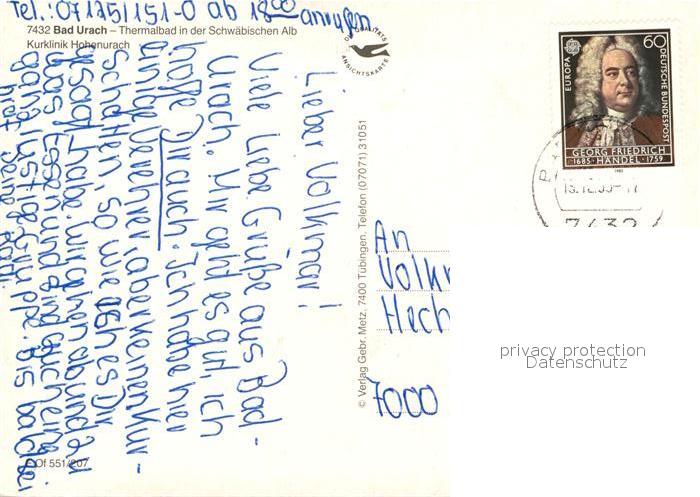 Tel.: 071251151-0 ab 18⁰⁰ anrufen
7432 Bad Urach – Thermalbad in der Schwäbischen Alb
Kurklinik Hohenurach
QUALITÄTS
ANSICHTSKARTE
Lieber Volkmar!
Viele Liebe Grüße aus Bad-
Urach. Mir geht es gut, ich
hoffe Dir auch. Ich habe hier
einige Verehrer, aber keinen Kur-
schatten, so wie ich es Dir
gesagt habe. Wir gehen ab und zu
was Essen und sind auch eine
ganz lustige Gruppe. Bis bald bei
Deine
© Verlag Gebr. Metz, 7400 Tübingen, Telefon (07071) 31051
Of 551/207
EUROPA
60
DEUTSCHE BUNDESPOST
GEORG FRIEDRICH
1685 · HÄNDEL · 1759
1985
7432
An
Volk
Hech
7000
privacy protection
Datenschutz